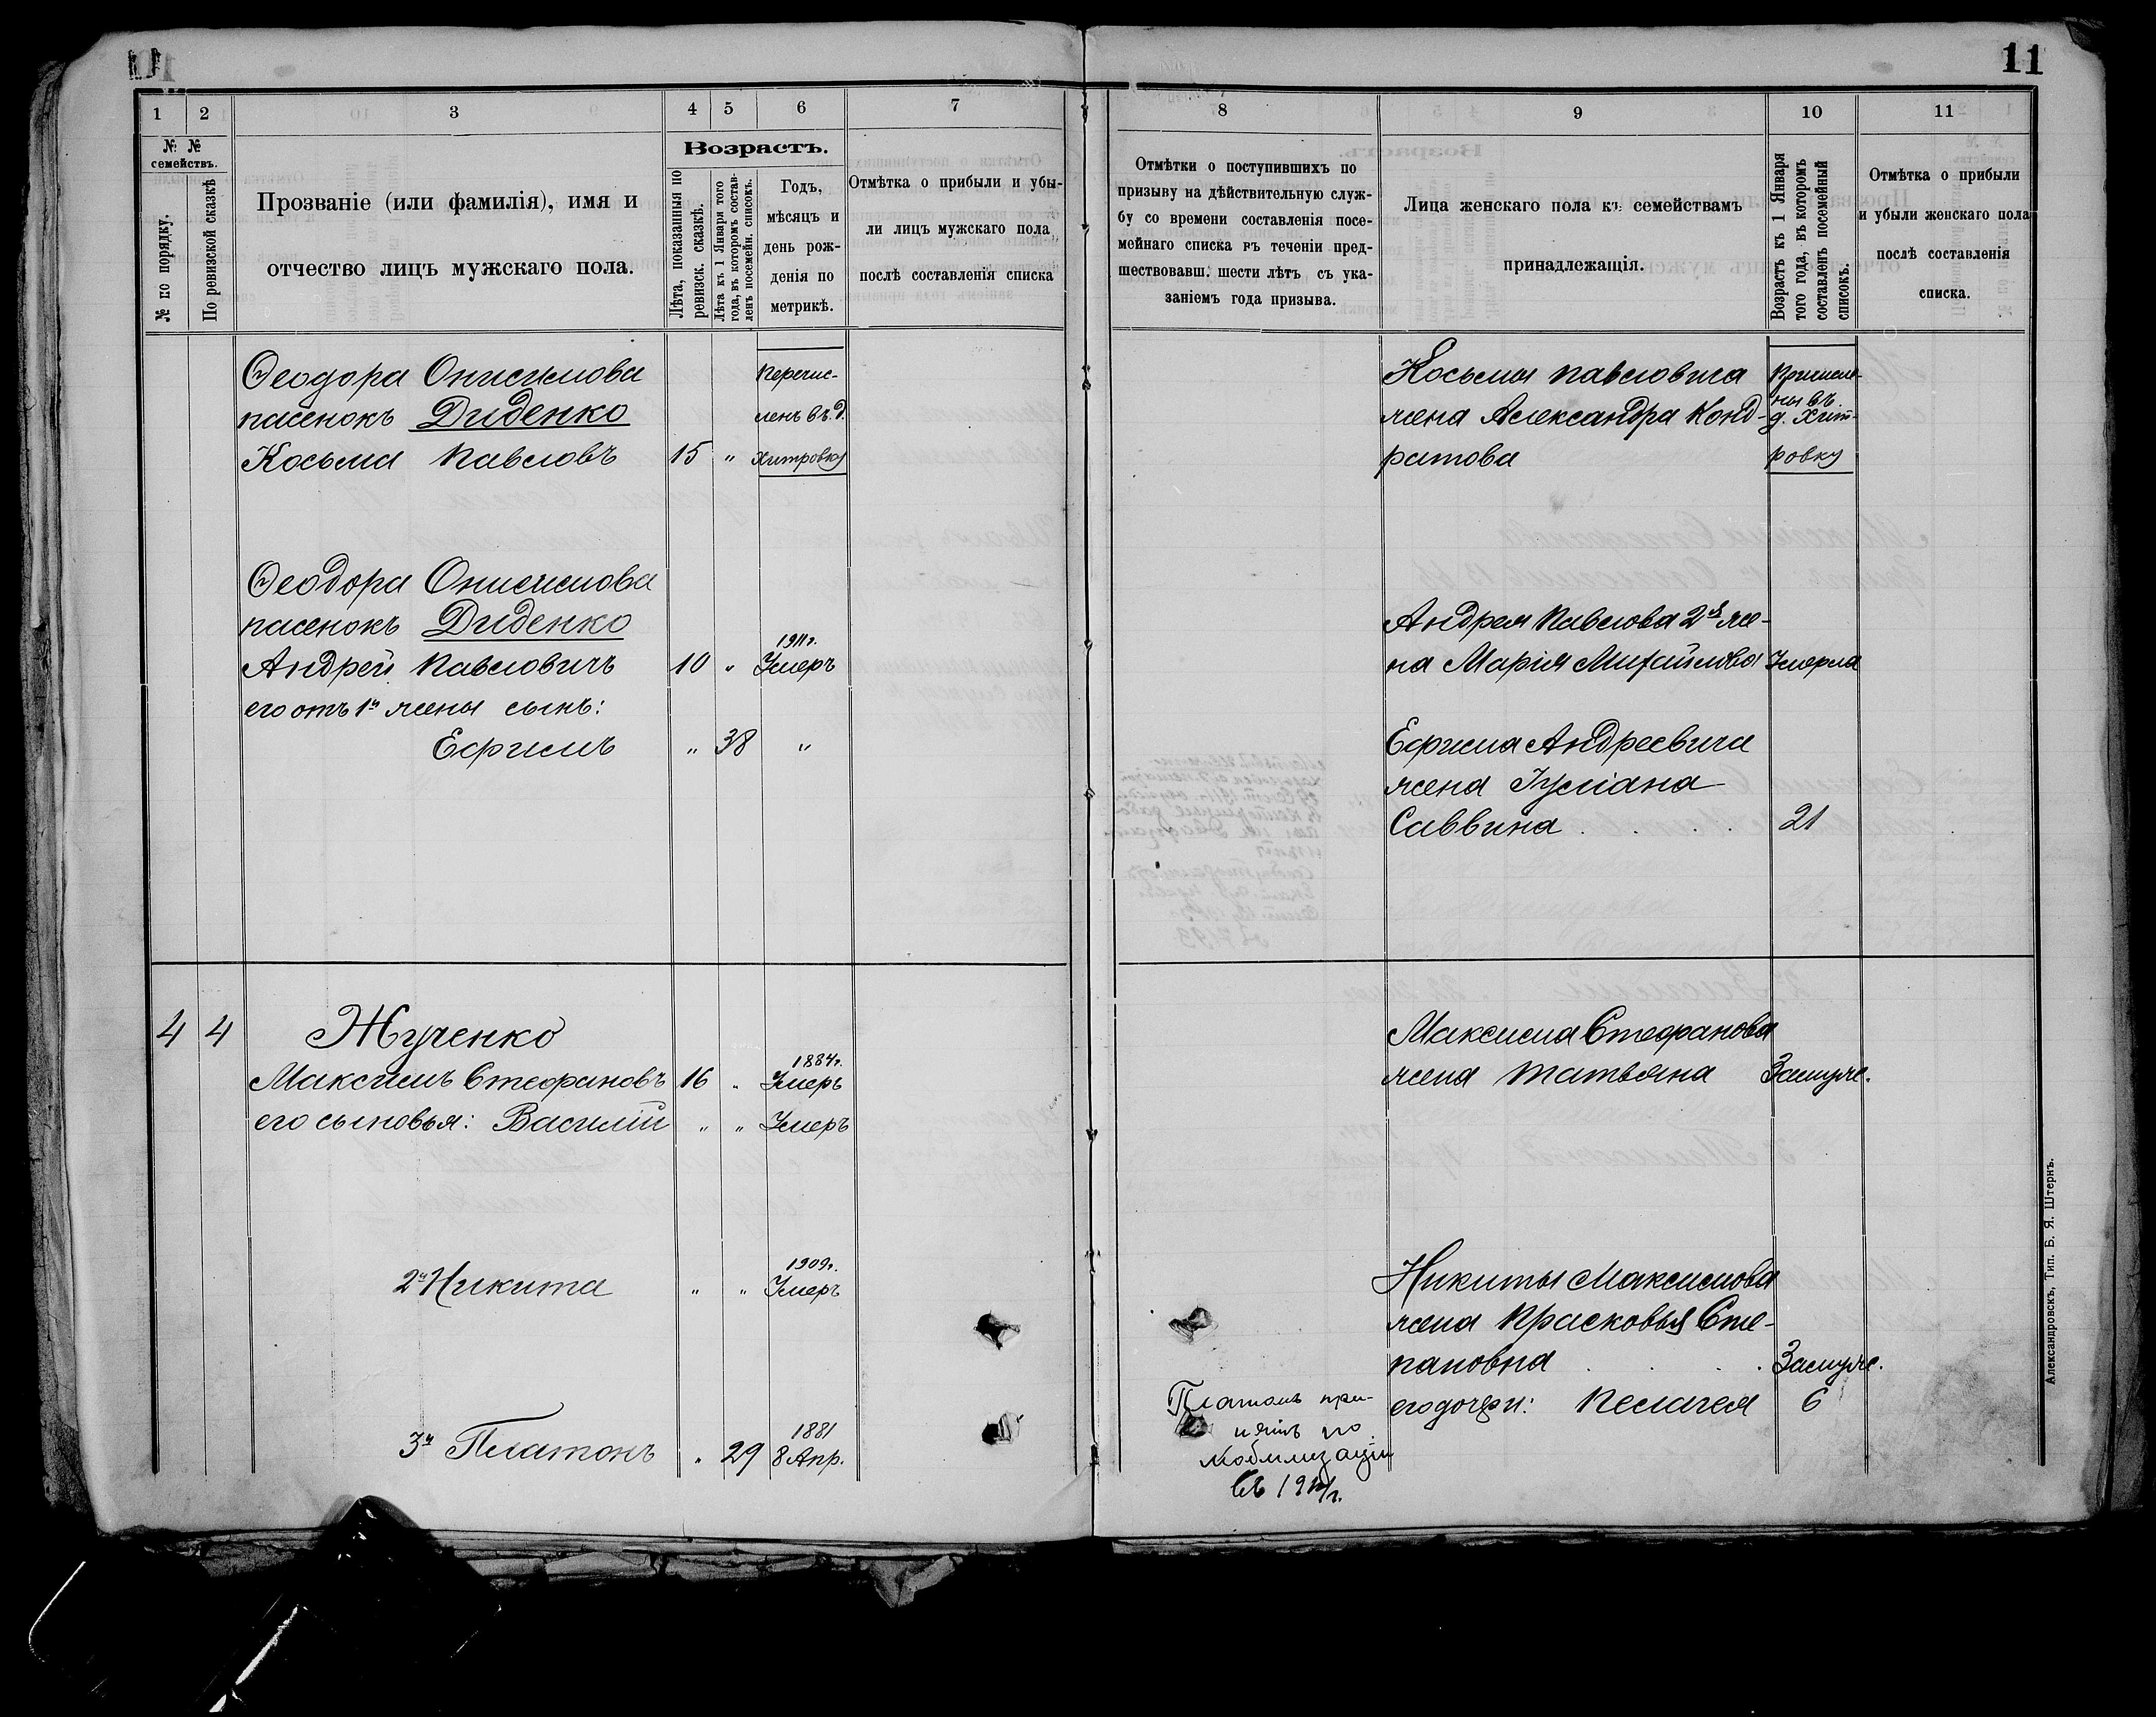 11
1 2 3 4 5 6 7
№ № семействъ.
№ по порядку.
По ревизской сказкѣ
Прозваніе (или фамилія), имя и
отчество лицъ мужскаго пола.
Возрастъ.
Лѣта, показанныя по
ревизск. сказкѣ.
Лѣта къ 1 Января того
года, въ которомъ состав-
ленъ посемейн. списокъ.
Годъ,
мѣсяцъ и
день рож-
денія по
метрикѣ.
Отмѣтка о прибыли и убы-
ли лицъ мужскаго пола
послѣ составленія списка
Ѳеодора Онисимова Перечис-
пасенокъ Диденко ленъ въ д.
Косьма Павловъ 15 „ Хитровку
Ѳеодора Онисимова
пасенокъ Диденко 1911г.
Андрей Павловичъ 10 „ Умеръ
его отъ 1й жены сынъ:
Ефимъ „ 38 „
4 4 Жученко
1884г.
Максимъ Стефановъ 16 „ Умеръ
его сыновья: Василій „ „ Умеръ
1909г.
2й Никита „ „ Умеръ
1881
3й Платонъ „ 29 8 Апр.
8 9 10 11
Отмѣтки о поступившихъ по
призыву на дѣйствительную служ-
бу со времени составленія посе-
мейнаго списка въ теченіи пред-
шествовавш. шести лѣтъ съ ука-
заніемъ года призыва.
Лица женскаго пола къ семействамъ
принадлежащія.
Возрастъ къ 1 Января
того года, въ которомъ
составленъ посемейный
списокъ.
Отмѣтка о прибыли
и убыли женскаго пола
послѣ составленія
списка.
Косьмы Павловича Причисле-
жена Александра Конд- ны въ д. Хит-
ратова ровку
Андрея Павлова 2я же-
на Марія Михайлова Умерла
Ефима Андреевича
жена Іуліана
Саввина . . . . 21
Максима Стефанова
жена Татьяна Замуж.
Никиты Максимова
жена Прасковья Сте-
пановна . . . . Замуж.
его дочери: Пелагея 6
Платонъ при-
нятъ по
мобилизаціи
въ 191 г.
Александровскъ, Тип. Б. Я. Штернъ.